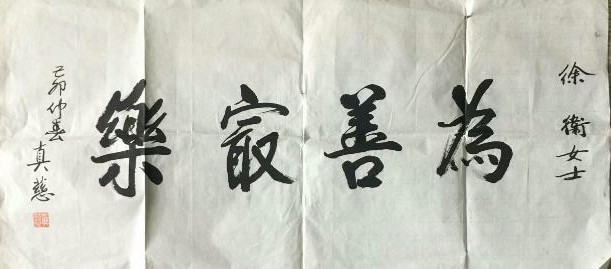 徐衛女士
為善最樂
己卯仲春
真慈